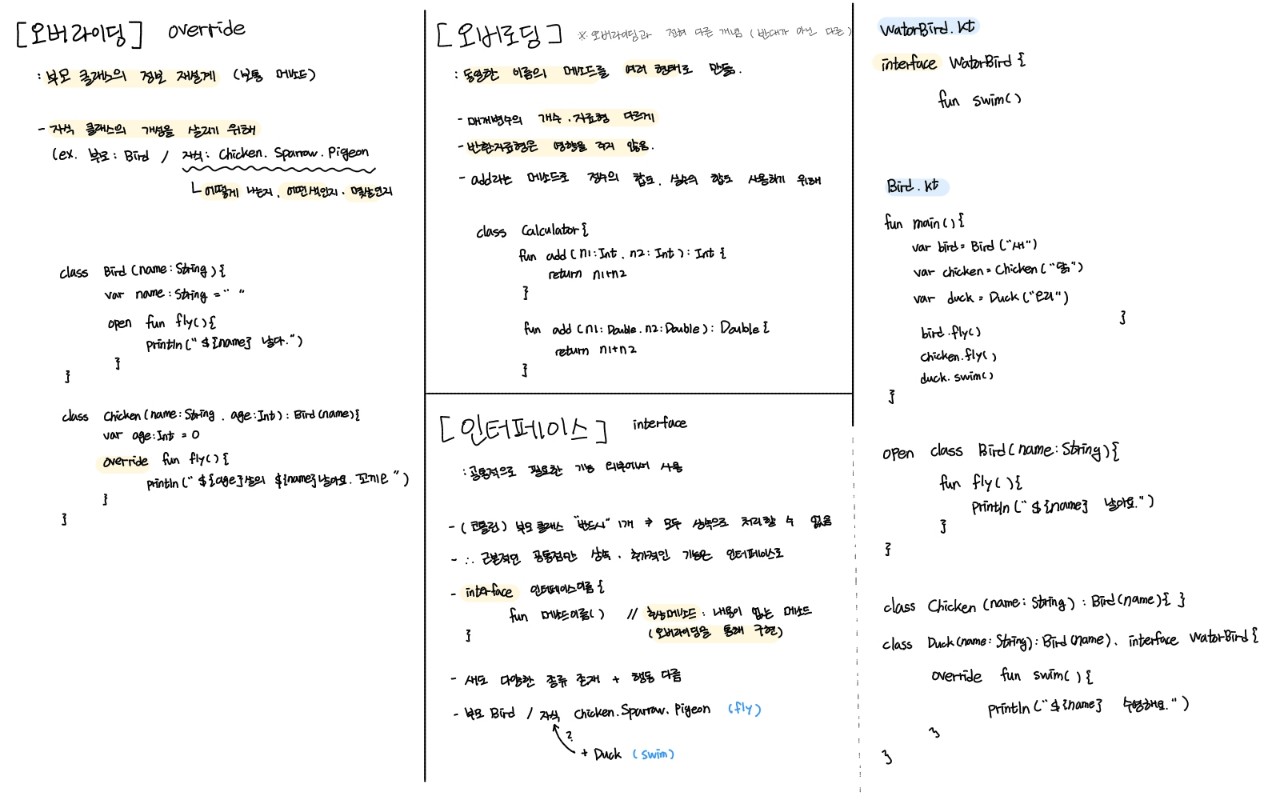 [오버라이딩] override
: 부모 클래스의 정보 재설계 (보통 메소드)
- 자식 클래스의 개성을 살리기 위해
(ex. 부모 : Bird / 자식 : Chicken. Sparrow. Pigeon
ㄴ 어떻게 나는지, 어떤색인지. 몇살인지
class Bird (name : String) {
var name : String = " "
open fun fly() {
println (" ${name} 날다.")
}
}
class Chicken (name : String , age : Int) : Bird (name) {
var age : Int = 0
override fun fly() {
println (" ${age}살의 ${name}날아요. 꼬끼오 ")
}
}
[오버로딩] ※ 오버라이딩과 전혀 다른 개념 (반대가 아닌 다름)
: 동일한 이름의 메소드를 여러 형태로 만듦.
- 매개변수의 개수 . 자료형 다르게
- 반환자료형은 영향을 주지 않음.
- add라는 메소드로 정수의 합도, 실수의 합도 사용하기 위해
class Calculator {
fun add (n1 : Int , n2 : Int) : Int {
return n1+n2
}
fun add (n1 : Double, n2 : Double) : Double {
return n1+n2
}
[인터페이스] interface
: 공통적으로 필요한 기능 외부에서 사용
- (코틀린) 부모 클래스 "반드시" 1개 ⇒ 모두 상속으로 처리할 수 없음
- ∴ 근본적인 공통점만 상속 . 추가적인 기능은 인터페이스로
- interface 인터페이스이름 {
fun 메소드이름() // 추상메소드 : 내용이 없는 메소드
} (오버라이딩을 통해 구현)
- 새도 다양한 종류 존재 + 행동 다름
- 부모 Bird / 자식 Chicken. Sparrow. Pigeon (fly)
?
+ Duck (swim)
WatorBird.kt
interface WatorBird {
fun swim()
Bird.kt
fun main() {
var bird = Bird ("새")
var chicken = Chicken ("닭")
var duck = Duck ("오리")
}
bird.fly()
chicken.fly()
duck.swim()
}
open class Bird (name : String) {
fun fly() {
println (" ${name} 날아요.")
}
}
class Chicken (name : String) : Bird (name) { }
class Duck (name : String) : Bird (name), interface WatorBird {
override fun swim() {
println (" ${name} 수영해요.")
}
}